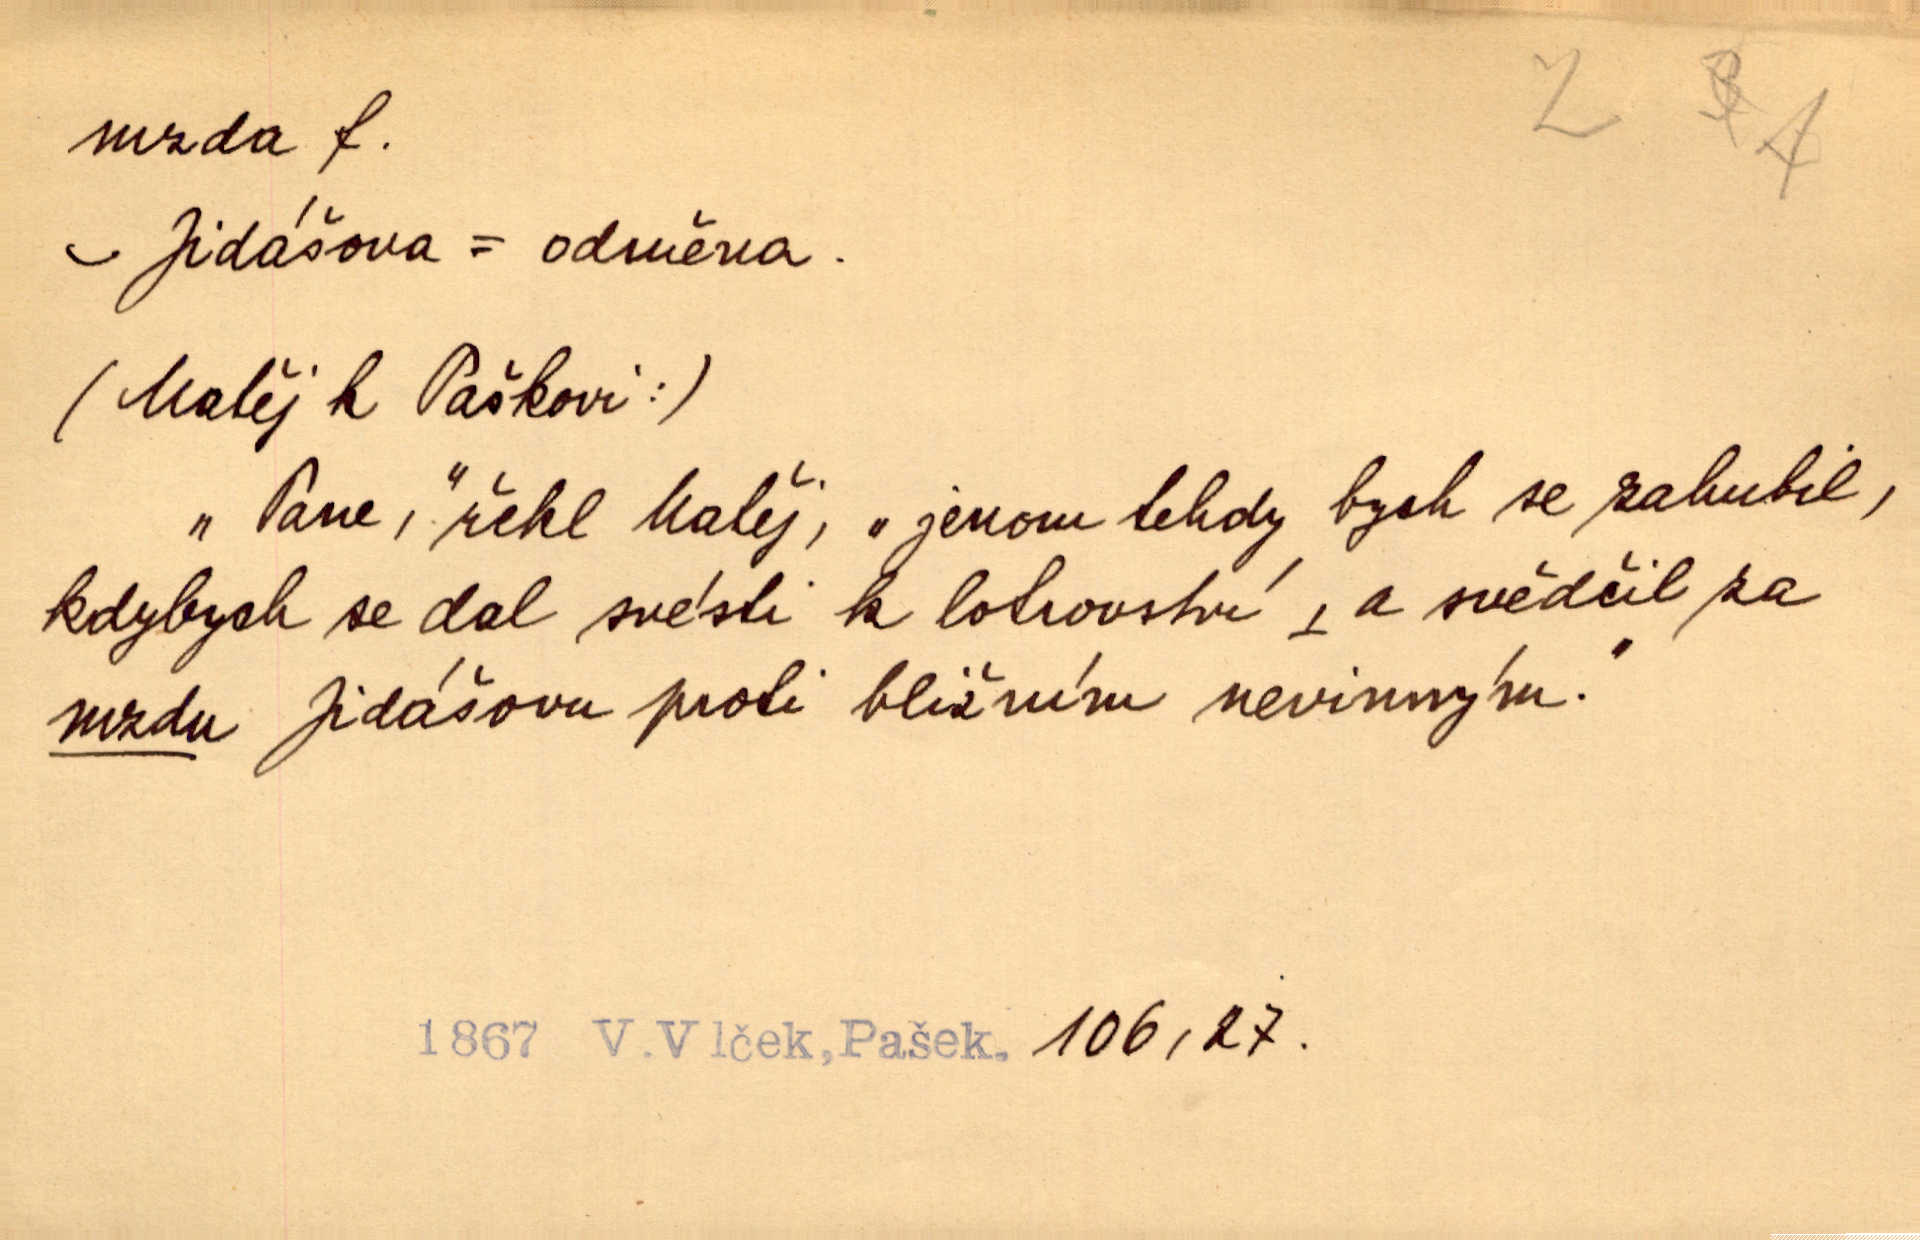 2 4
mzda f.
~ Jidášova = odměna.
(Matěj k Paškovi:)
„Pane,“ řekl Matěj, „jenom tehdy bych se zahubil,
kdybych se dal svésti k lotrovství ⊥ a svědčil za
mzdu Jidášovu proti bližním nevinným.“
1867 V.Vlček, Pašek. 106, 27.